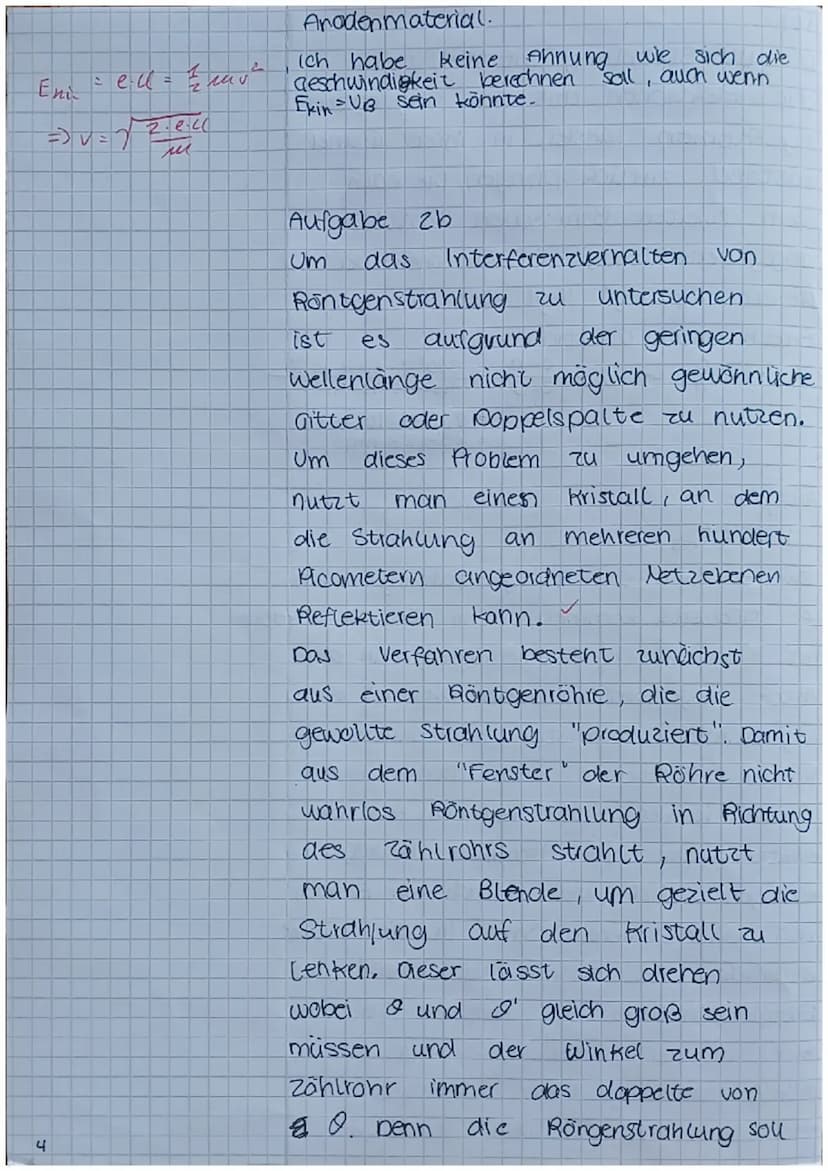 Anodenmaterial.
Ekin = e·U = 1/2 mv²
=> v = √(2·e·U/m)
Ich habe keine Ahnung wie sich die
Geschwindigkeit berechnen soll, auch wenn
Ekin = UB sein könnte.
Aufgabe 2b
Um das Interferenzverhalten von
Röntgenstrahlung zu untersuchen
ist es aufgrund der geringen
Wellenlänge nicht möglich gewöhnliche
Gitter oder Doppelspalte zu nutzen.
Um dieses Problem zu umgehen,
nutzt man einen Kristall, an dem
die Strahlung an mehreren hundert
Picometern angeordneten Netzebenen
Reflektieren kann. ✓
Das Verfahren besteht zunächst
aus einer Röntgenröhre, die die
gewollte Strahlung "produziert". Damit
aus dem "Fenster" der Röhre nicht
wahrlos Röntgenstrahlung in Richtung
des Zählrohrs strahlt, nutzt
man eine Blende, um gezielt die
Strahlung auf den Kristall zu
lenken. Dieser lässt sich drehen
wobei ϑ und ϑ' gleich groß sein
müssen und der Winkel zum
Zählrohr immer das doppelte von
ϑ. Denn die Röngenstrahlung soll
4